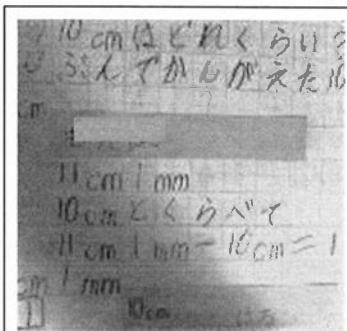 10cmはどれくらい
ぶんでかんがえた10
cm
11cm1mm
10cmとくらべて
11cm1mm-10cm=1
cm1mm
1
10cm